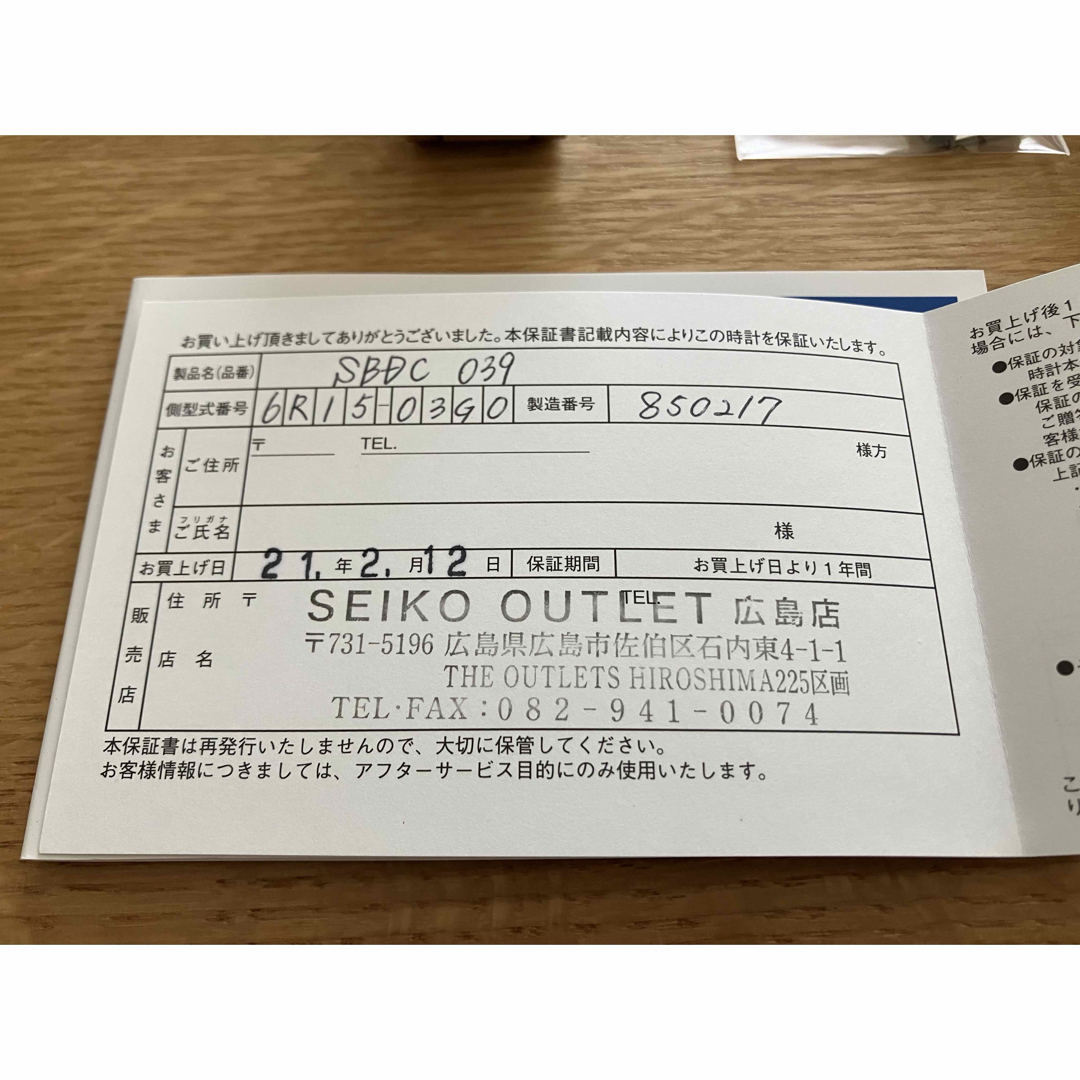 お買い上げ頂きましてありがとうございました。本保証書記載内容によりこの時計を保証いたします。
製品名(品番) SBDC 039
側型式番号 6R15-03G0 製造番号 850217
お客さま
ご住所 〒 TEL. 様方
フリガナ
ご氏名 様
お買上げ日 21.年2.月12日 保証期間 お買上げ日より1年間
販売店
住所 〒 TEL.
SEIKO OUTLET 広島店
〒731-5196 広島県広島市佐伯区石内東4-1-1
店名
THE OUTLETS HIROSHIMA225区画
TEL・FAX:082-941-0074
本保証書は再発行いたしませんので、大切に保管してください。
お客様情報につきましては、アフターサービス目的にのみ使用いたします。
お買上げ後1
場合には、下
●保証の対
時計本
●保証を受
保証の
ご贈
客様
●保証の
上記